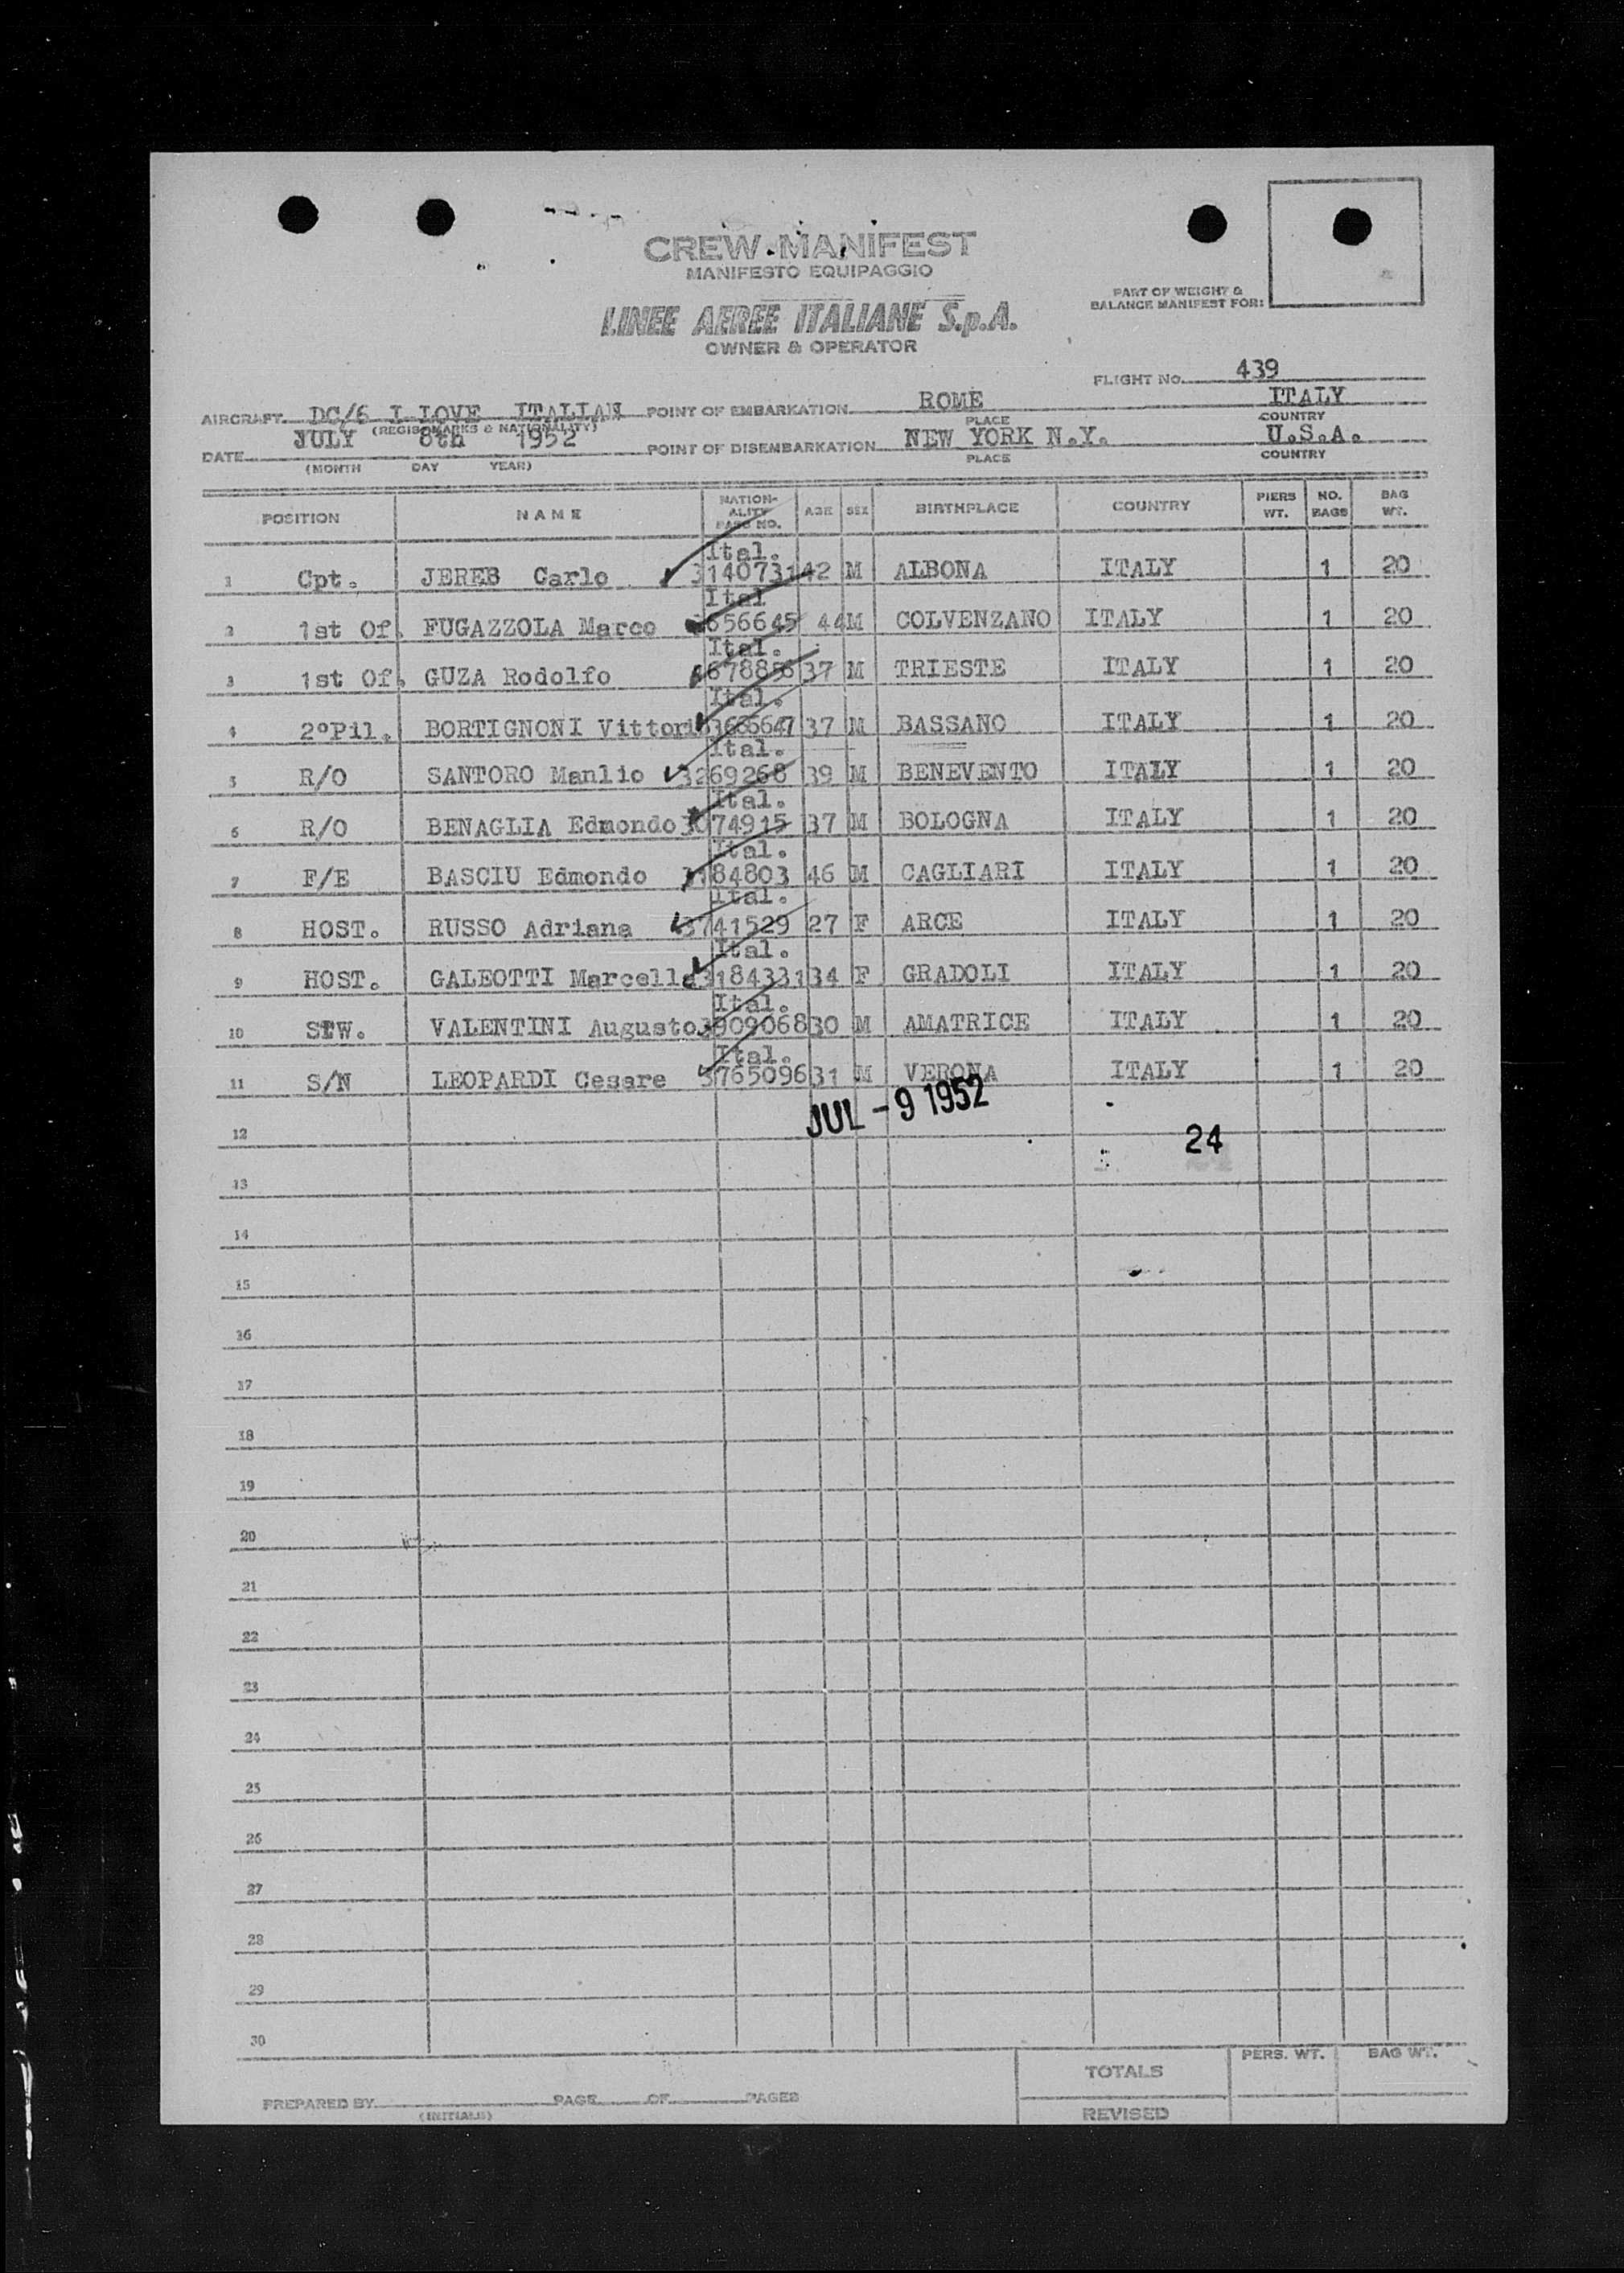 CREW MANIFEST
MANIFESTO EQUIPAGGIO
PART OF WEIGHT &
BALANCE MANIFEST FOR:
LINEE AEREE ITALIANE S.p.A.
OWNER & OPERATOR
FLIGHT No. 439
AIRCRAFT DC/6 I LOVE ITALIAN POINT OF EMBARKATION ROME ITALY
(REGIS. MARKS & NATIONALITY) PLACE COUNTRY
DATE JULY 8th 1952 POINT OF DISEMBARKATION NEW YORK N.Y. U.S.A.
(MONTH DAY YEAR) PLACE COUNTRY
POSITION NAME NATION-ALITY PASS NO. AGE SEX BIRTHPLACE COUNTRY PIERS WT. NO. BAGS BAG WT.
1 Cpt. JEREB Carlo Ital. 3140731 42 M ALBONA ITALY 1 20
2 1st Of. FUGAZZOLA Marco Ital 656645 44 M COLVENZANO ITALY 1 20
3 1st Of. GUZA Rodolfo Ital. 37 M TRIESTE ITALY 1 20
4 2°Pil. BORTIGNONI Vittorio Ital. 3686647 37 M BASSANO ITALY 1 20
5 R/O SANTORO Manlio Ital. 3269268 39 M BENEVENTO ITALY 1 20
6 R/O BENAGLIA Edmondo Ital. 3074915 37 M BOLOGNA ITALY 1 20
7 F/E BASCIU Edmondo Ital. 3184803 46 M CAGLIARI ITALY 1 20
8 HOST. RUSSO Adriana Ital. 3741529 27 F ARCE ITALY 1 20
9 HOST. GALEOTTI Marcella Ital. 3184331 34 F GRADOLI ITALY 1 20
10 STW. VALENTINI Augusto Ital. 3909068 30 M AMATRICE ITALY 1 20
11 S/N LEOPARDI Cesare Ital. 3765096 31 M VERONA ITALY 1 20
JUL - 9 1952
12 24
13
14
15
16
17
18
19
20
21
22
23
24
25
26
27
28
29
30
TOTALS PERS. WT. BAG WT.
PREPARED BY PAGE OF PAGES
(INITIALS) REVISED